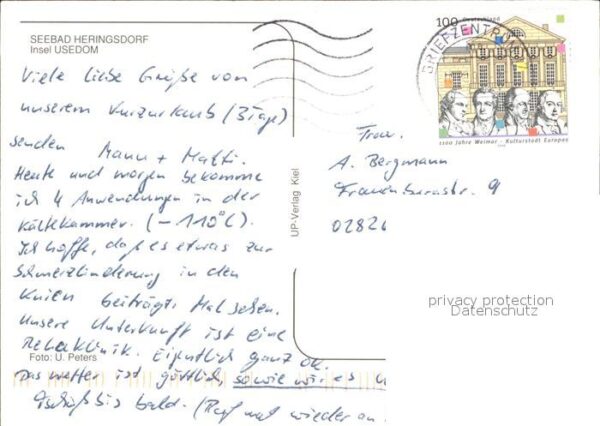 SEEBAD HERINGSDORF
Insel USEDOM
Viele liebe Grüße von
unserem Kurzurlaub (3 Tage)
senden Mann + Matti.
Heute und morgen bekomme
ich 4 Anwendungen in der
Kältekammer. (-110°C).
Ich hoffe, daß es etwas zur
Schmerzlinderung in den
Knien beiträgt. Mal sehen.
Unsere Unterkunft ist eine
Rehaklinik. Eigentlich ganz ok.
Das Wetter ist göttlich sowie wir es
Tschüß bis bald. (Ruf mal wieder an
Foto: U. Peters
UP-Verlag Kiel
100 Deutschland
BRIEFZENTRUM
1100 Jahre Weimar - Kulturstadt Europas
Frau
A. Bergmann
9
02826
privacy protection
Datenschutz